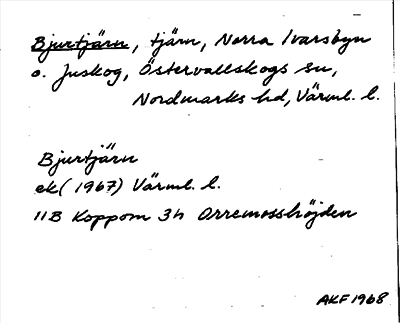 Bjurtjärn, tjärn, Norra Ivarsbyn
o. Juskog, Östervallskogs sn,
Nordmarks hd, Värml. l.
Bjurtjärn
ek (1967) Värml. l.
11B Koppom 3h Orremosshöjden
AKF 1968